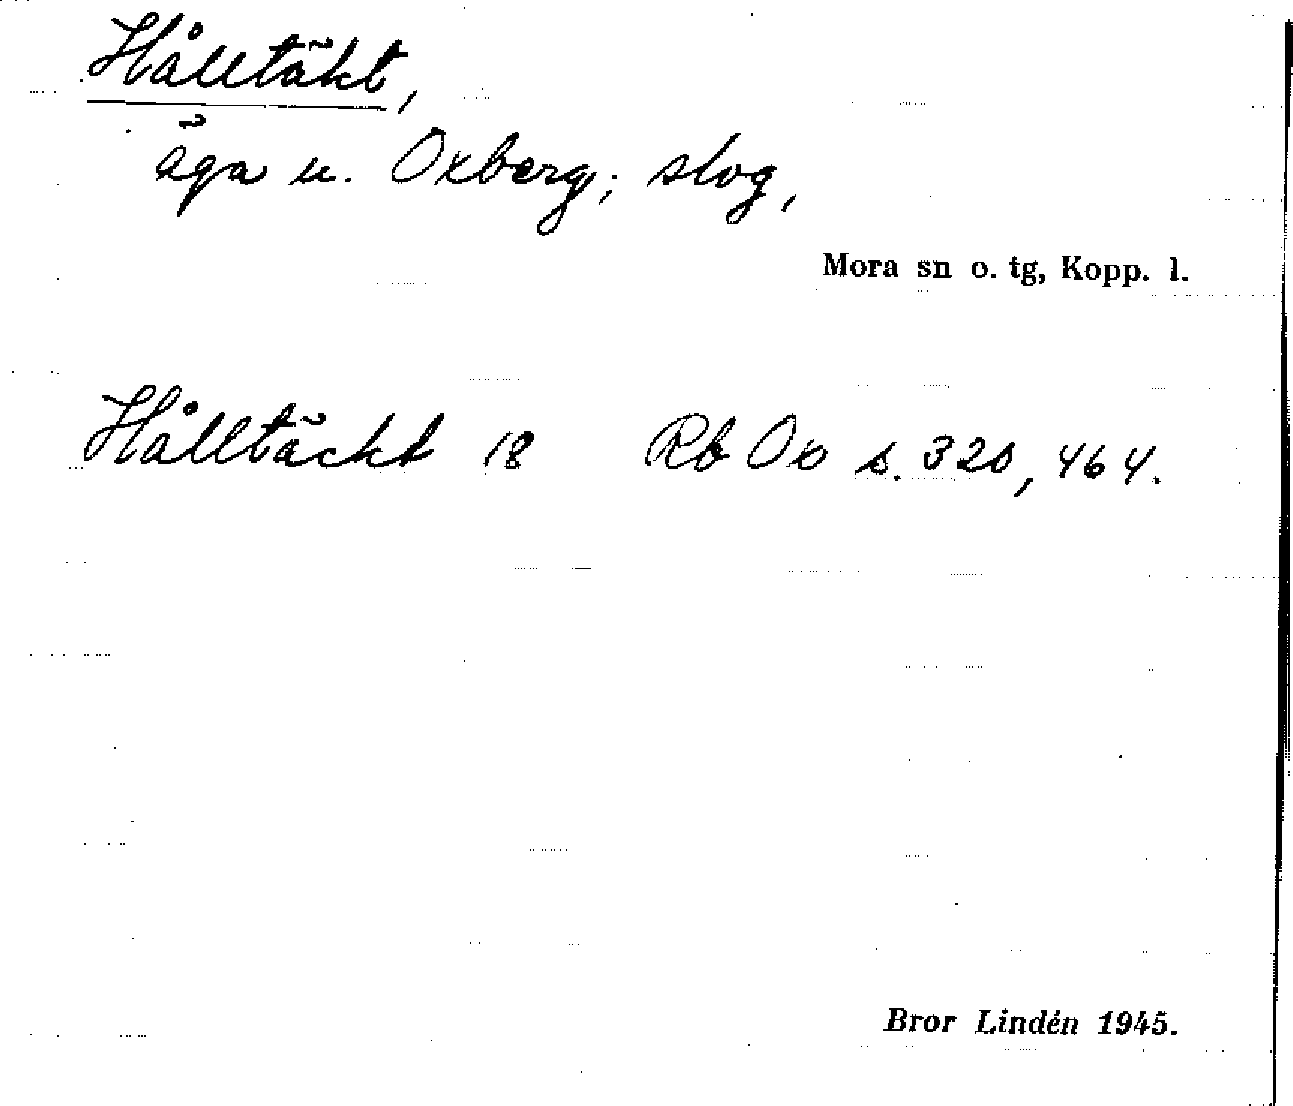 Hålltäkt,
äga u. Oxberg; slog,
Mora sn o. tg, Kopp. l.
Hålltäckt 18 Rb Ox s. 320, 464.
Bror Lindén 1945.